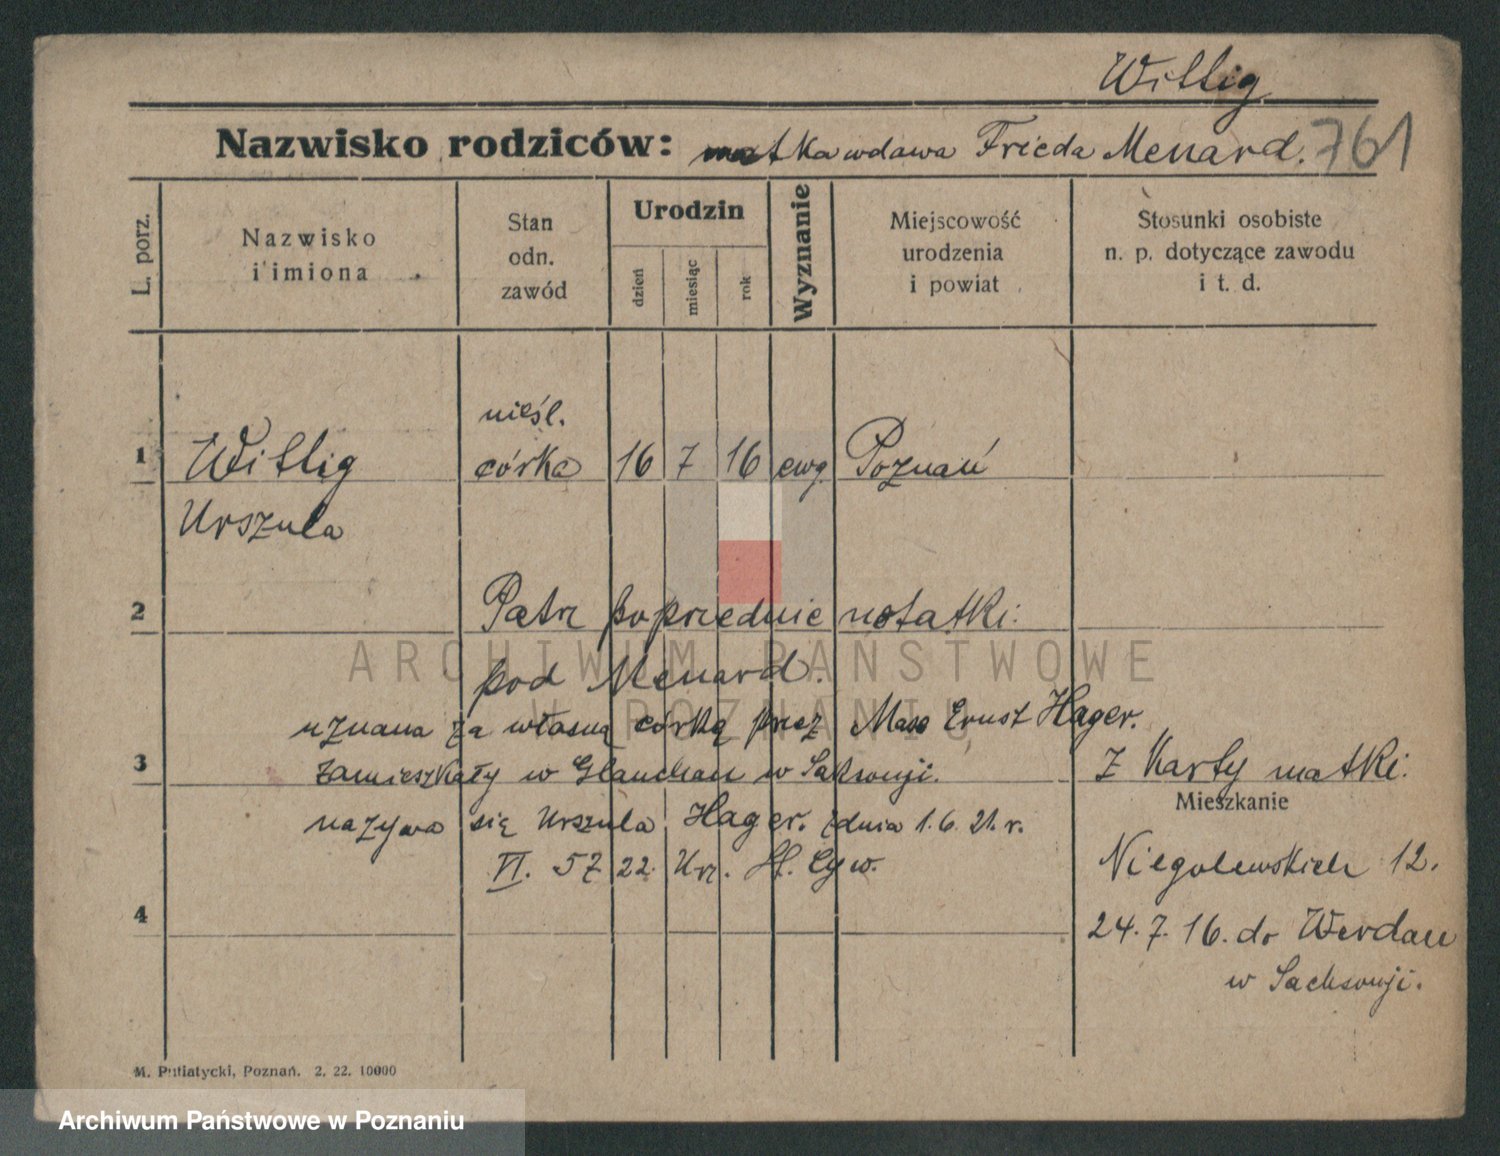 Willig
Nazwisko rodziców: matka wdawa Frieda Menard. 761
L. porz.
Nazwisko i imiona
Stan odn. zawód
Urodzin
dzień
miesiąc
rok
Wyznanie
Miejscowość urodzenia i powiat
Stosunki osobiste n. p. dotyczące zawodu i t. d.
nieśl.
1 Willig córka 16 7 16 ewg. Poznań
Urszula
2 Patrz poprzednie notatki.
pod Menard.
uznana za własną córkę przez Max Ernst Hager.
3 zamieszkały w Glauchau w Saksonji. Z Karty matki.
Mieszkanie
nazywa się Urszula Hager. z dnia 1.6.21.r.
VI. 57 22. Urz. St. Cyw. Niegolewskich 12.
4 24.7.16. do Werdau
w Sachsonji.
M. Putiatycki, Poznań. 2. 22. 10000
ARCHIWUM PAŃSTWOWE
W POZNANIU
Archiwum Państwowe w Poznaniu